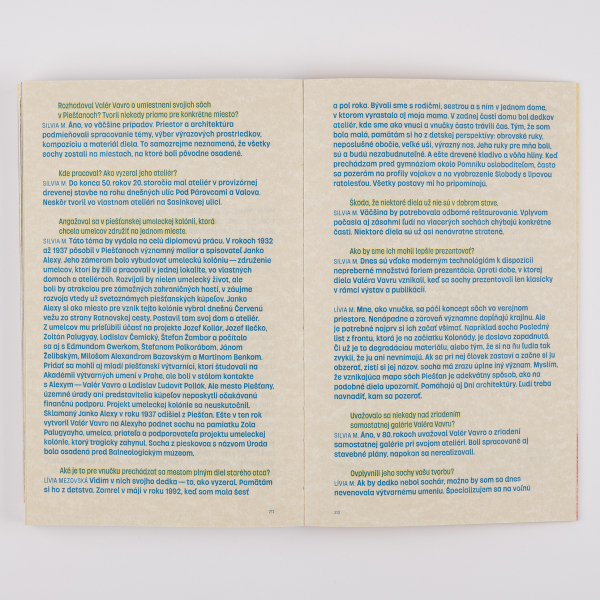 Rozhodoval Valér Vavro o umiestnení svojich sôch
v Piešťanoch? Tvoril niekedy priamo pre konkrétne miesto?
SILVIA M. Áno, vo väčšine prípadov. Priestor a architektúra
podmieňovali spracovanie témy, výber výrazových prostriedkov,
kompozíciu a materiál diela. To samozrejme neznamená, že všetky
sochy zostali na miestach, na ktoré boli pôvodne osadené.
Kde pracoval? Ako vyzeral jeho ateliér?
SILVIA M. Do konca 50. rokov 20. storočia mal ateliér v provizórnej
drevenej stavbe na rohu dnešných ulíc Pod Párovcami a Valova.
Neskôr tvoril vo vlastnom ateliéri na Sasinkovej ulici.
Angažoval sa v piešťanskej umeleckej kolónii, ktorá
chcela umelcov združiť na jednom mieste.
SILVIA M. Táto téma by vydala na celú diplomovú prácu. V rokoch 1932
až 1937 pôsobil v Piešťanoch významný maliar a spisovateľ Janko
Alexy. Jeho zámerom bolo vybudovať umeleckú kolóniu — združenie
umelcov, ktorí by žili a pracovali v jednej lokalite, vo vlastných
domoch a ateliéroch. Rozvíjali by nielen umelecký život, ale
boli by atrakciou pre zámožných zahraničných hostí, v záujme
rozvoja vtedy už svetoznámych piešťanských kúpeľov. Janko
Alexy si ako miesto pre vznik tejto kolónie vybral dnešnú Červenú
vežu za strany Ratnovskej cesty. Postavil tam svoj dom a ateliér.
Z umelcov mu prisľúbili účasť na projekte Jozef Kollár, Jozef Ilečko,
Zoltán Palugyay, Ladislav Čemický, Štefan Žembor a počítalo
sa aj s Edmundom Gwerkom, Štefanom Polkorábom, Jánom
Želibským, Milošom Alexandrom Bazovským a Martinom Benkom.
Pridať sa mohli aj mladí piešťanskí výtvarníci, ktorí študovali na
Akadémii výtvarných umení v Prahe, ale boli v stálom kontakte
s Alexym — Valér Vavro a Ladislav Ľudovít Pollák. Ale mesto Piešťany,
územné úrady ani predstavitelia kúpeľov neposkytli očakávanú
finančnú podporu. Projekt umeleckej kolónie sa neuskutočnil.
Sklamaný Janko Alexy v roku 1937 odišiel z Piešťan. Ešte v ten rok
vytvoril Valér Vavro na Alexyho podnet sochu na pamiatku Zola
Palugyayho, umelca, priateľa a podporovateľa projektu umeleckej
kolónie, ktorý tragicky zahynul. Socha z pieskovca s názvom Úroda
bola osadená pred Balneologickým múzeom.
Aké je to pre vnučku prechádzať sa mestom plným diel starého otca?
LÍVIA MEZOVSKÁ Vidím v nich svojho dedka — to, ako vyzeral. Pamätám
si ho z detstva. Zomrel v máji v roku 1992, keď som mala šesť
213
a pol roka. Bývali sme s rodičmi, sestrou a s ním v jednom dome,
v ktorom vyrastala aj moja mama. V zadnej časti domu bol dedkov
ateliér, kde sme ako vnuci a vnučky často trávili čas. Tým, že som
bola malá, pamätám si ho z detskej perspektívy: obrovské ruky,
neposlušné obočie, veľké uši, výrazný nos. Jeho ruky pre mňa boli,
sú a budú nezabudnuteľné. A ešte drevené kladivo a vôňa hliny. Keď
prechádzam pred gymnáziom okolo Pomníku osloboditeľom, často
sa pozerám na profily vojakov a na vyobrazenie Slobody s lipovou
ratolesťou. Všetky postavy mi ho pripomínajú.
Škoda, že niektoré diela už nie sú v dobrom stave.
SILVIA M. Väčšina by potrebovala odborné reštaurovanie. Vplyvom
počasia aj zásahmi ľudí na viacerých sochách chýbajú konkrétne
časti. Niektoré diela sú už asi nenávratne stratené.
Ako by sme ich mohli lepšie prezentovať?
SILVIA M. Dnes sú vďaka moderným technológiám k dispozícii
nepreberné množstvá foriem prezentácie. Oproti dobe, v ktorej
diela Valéra Vavru vznikali, keď sa sochy prezentovali len klasicky
v rámci výstav a publikácií.
LÍVIA M. Mne, ako vnučke, sa páči koncept sôch vo verejnom
priestore. Nenápadne a zároveň významne dopĺňajú krajinu. Ale
je potrebné najprv si ich začať všímať. Napríklad socha Posledný
list z frontu, ktorá je na začiatku Kolonády, je doslova zapadnutá.
Či už je to degradáciou materiálu, alebo tým, že si na ňu ľudia tak
zvykli, že ju ani nevnímajú. Ak sa pri nej človek zastaví a začne si ju
obzerať, zistí si jej názov, socha má zrazu úplne iný význam. Myslím,
že vznikajúca mapa sôch Piešťan je adekvátny spôsob, ako na
podobné diela upozorniť. Pomáhajú aj Dni architektúry. Ľudí treba
navnadiť, kam sa pozerať.
Uvažovalo sa niekedy nad zriadením
samostatnej galérie Valéra Vavru?
SILVIA M. Áno, v 80. rokoch uvažoval Valér Vavro o zriadení
samostatnej galérie pri svojom ateliéri. Boli spracované aj
stavebné plány, napokon sa nerealizovali.
Ovplyvnili jeho sochy vašu tvorbu?
LÍVIA M. Ak by dedko nebol sochár, možno by som sa dnes
nevenovala výtvarnému umeniu. Špecializujem sa na voľnú